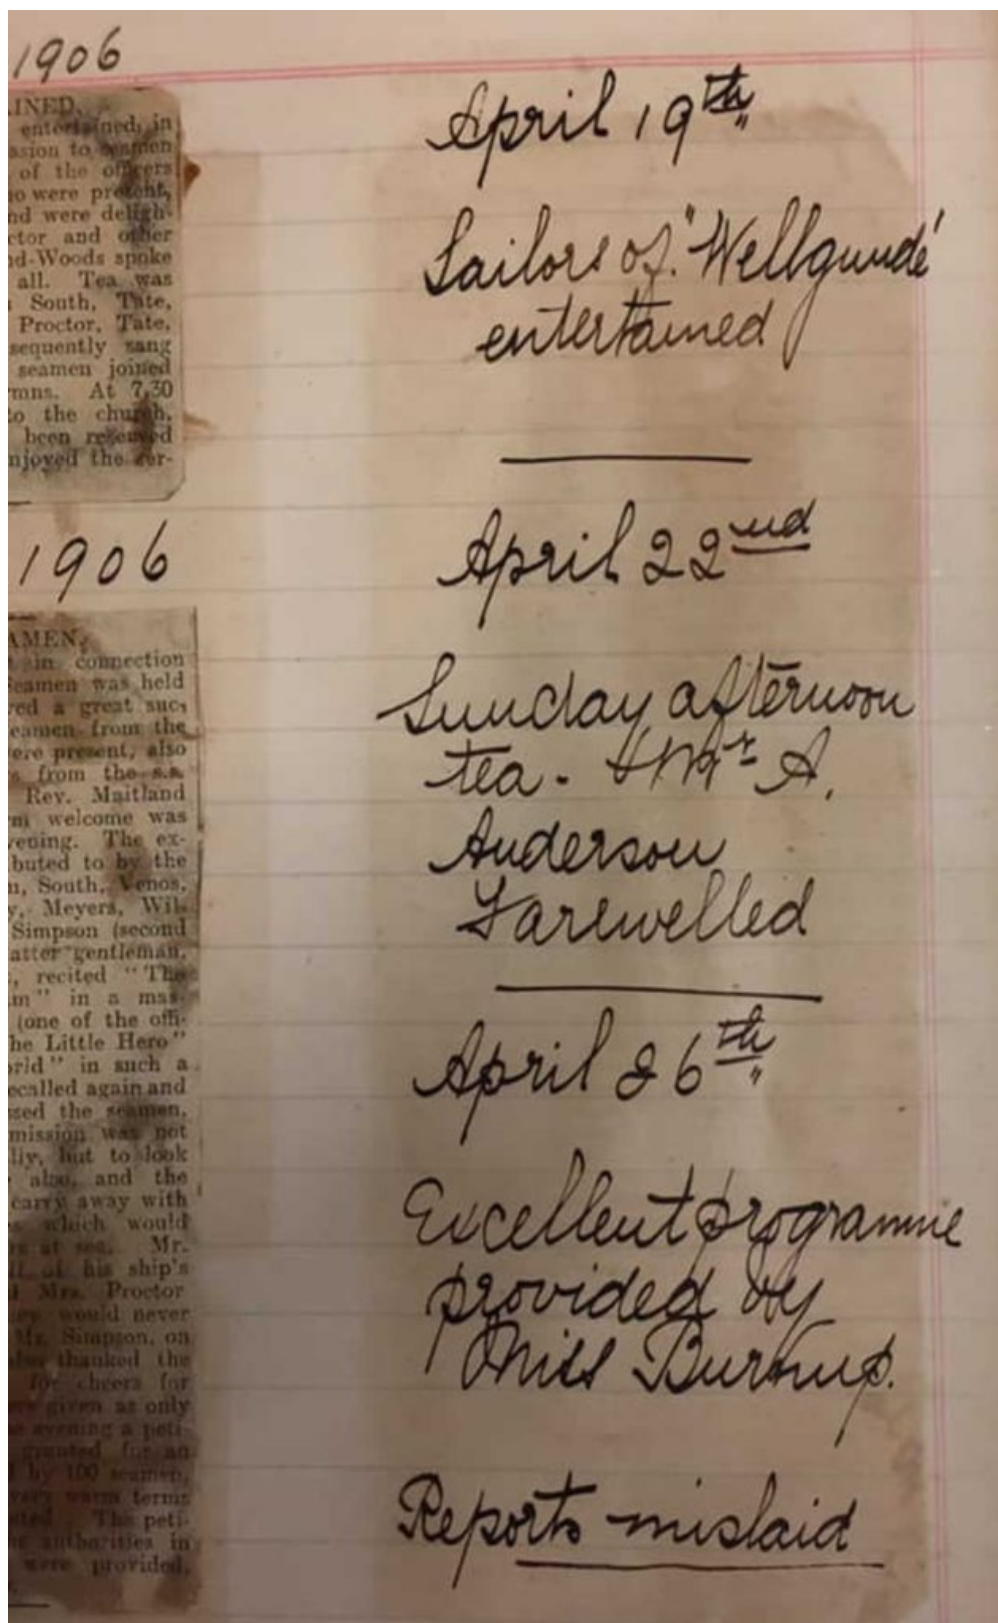 1906
INED.
entertained, in
asion to seamen
of the officers
o were present,
nd were deligh-
ctor and other
d-Woods spoke
all. Tea was
South, Tate,
Proctor, Tate,
sequently sang
seamen joined
mns. At 7.30
to the church,
been reserved
njoyed the ser-
1906
AMEN.
in connection
Seamen was held
ved a great suc-
eamen from the
ere present, also
s from the s.s.
Rev. Maitland
m welcome was
vening. The ex-
buted to by the
n, South, Venos,
y, Meyers, Wil-
Simpson (second
atter gentleman,
, recited "The
m" in a mas-
(one of the offi-
he Little Hero"
orld" in such a
ecalled again and
ssed the seamen,
mission was not
lly, but to look
also, and the
carry away with
s which would
at sea. Mr.
of his ship's
Mrs. Proctor
would never
Mr. Simpson, on
thanked the
for cheers for
given as only
evening a peti-
granted for an
by 100 seamen,
very warm terms
The peti-
authorities in
were provided,
April 19th
Sailors of "Wellgunde"
entertained
April 22nd
Sunday afternoon
tea - & Mr A.
Anderson
Farewelled
April 26th
Excellent programme
provided by
Miss Burnup.
Reports mislaid